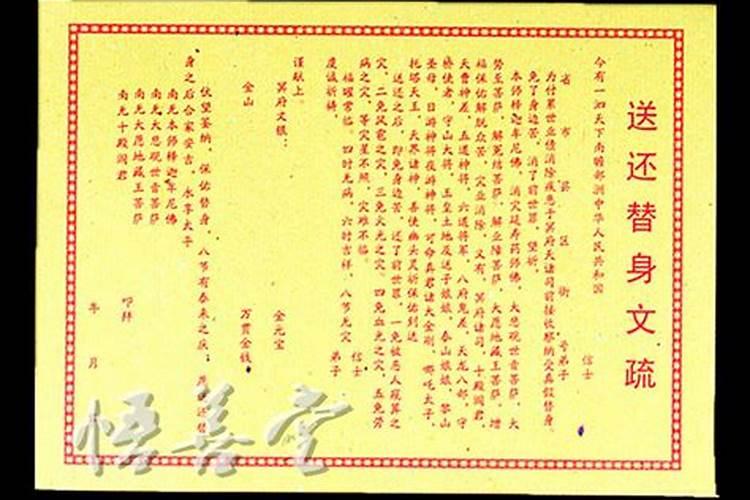 送还替身文疏
今有一泗天下南赡部洲中华人民共和国
省 市 县 区 街 号弟子 信士
为付累世业债消除疾患于冥府天诸司前接收祭纳受真假替身
免了身边苦,消了前世罪,望祈,
本师释迦牟尼佛,消灾延寿药师佛,大悲观世音菩萨,大
势至菩萨,解冤结菩萨,解业障菩萨,大愿地藏王菩萨,增
福保佑解脱众苦,灾业消除,又有,冥府诸司,十殿阎君,
天曹神差,五道神将,六道将军,八府鬼差,天龙八部,守
桥使者,守山大将,王皇土地及送子娘娘,泰山娘娘,黎山
圣母,日游神将夜游神将,司命真君诸大金刚,哪吒太子,
托塔天王,天界诸神,善使幽头灵祈保佑到送
送还之后,即免身边苦,还了前世罪,一免被恶人段算之
灾,二免风雹之灾,三免火光之灾,四免血光之灾,五免劳
病之灾,等灾星不照,灾难不临,
福耀常临,四时无病,六时吉祥,八节无灾 信士
虔诚祈祷, 弟子
谨献上,
冥府文银: 金元宝
金山 万贯金钱
伏望鉴纳,保佑替身,八节有泰来之庆;送还替
身之后合家安吉,永享太子
南无本师释迦牟尼佛
南无大悲观世音菩萨
南无大愿地藏王菩萨
南无十殿阎君 叩拜
年 月
悟善堂